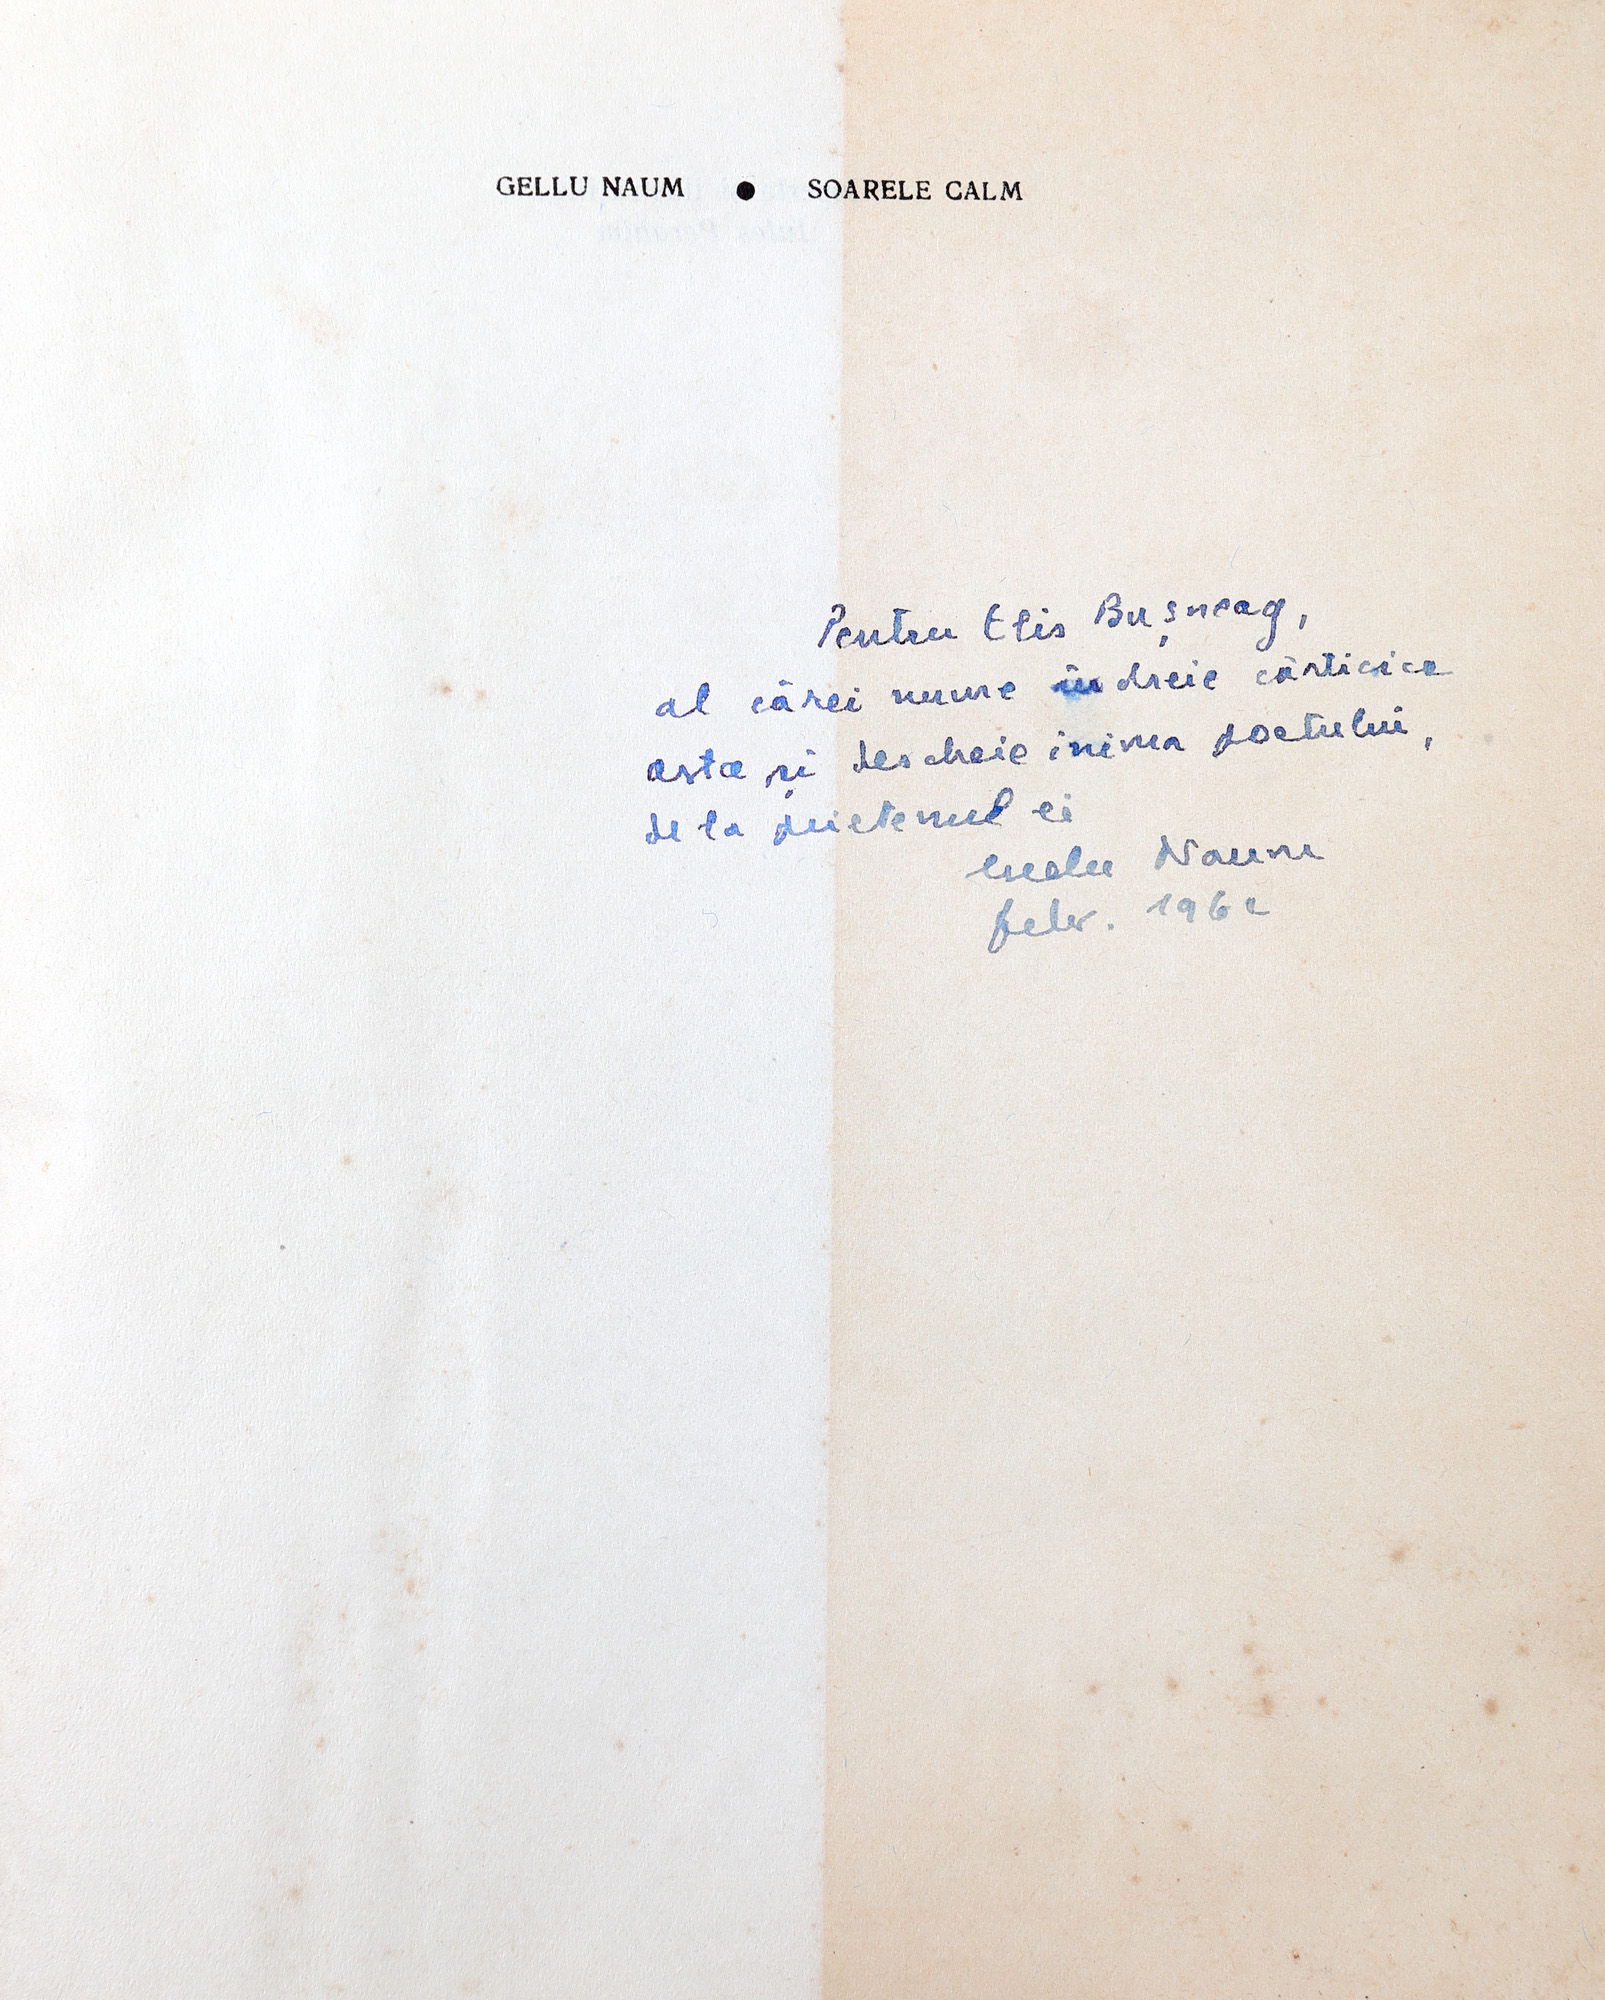 GELLU NAUM ● SOARELE CALM
Pentru Elis Bușneag,
al cărei nume încheie cărticica
asta și descheie inima poetului,
de la prietenul ei
Gellu Naum
febr. 196